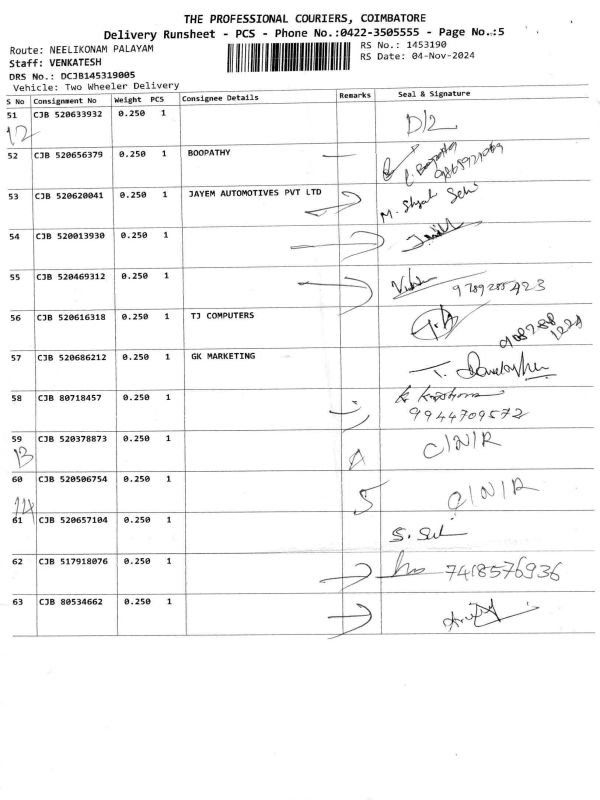 THE PROFESSIONAL COURIERS, COIMBATORE
Delivery Runsheet - PCS - Phone No.:0422-3505555 - Page No.:5
Route: NEELIKONAM PALAYAM
RS No.: 1453190
Staff: VENKATESH
RS Date: 04-Nov-2024
DRS No.: DCJB145319005
Vehicle: Two Wheeler Delivery
S No Consignment No Weight PCS Consignee Details Remarks Seal & Signature
51 CJB 520633932 0.250 1 D/2
12
52 CJB 520656379 0.250 1 BOOPATHY
53 CJB 520620041 0.250 1 JAYEM AUTOMOTIVES PVT LTD
54 CJB 520013930 0.250 1
55 CJB 520469312 0.250 1
56 CJB 520616318 0.250 1 TJ COMPUTERS
57 CJB 520686212 0.250 1 GK MARKETING
58 CJB 80718457 0.250 1
9944709572
59 CJB 520378873 0.250 1 C/N/R
13
60 CJB 520506754 0.250 1 5 C/N/R
14
61 CJB 520657104 0.250 1
62 CJB 517918076 0.250 1 7418576936
63 CJB 80534662 0.250 1